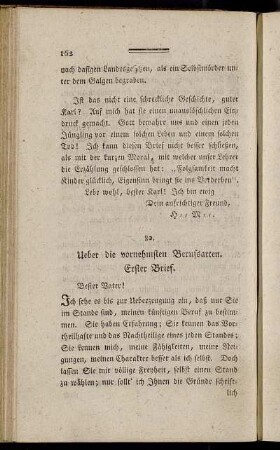 162
nach dasigen Landesgesetzen, als ein Selbstmörder un-
ter dem Galgen begraben.
Ist das nicht eine schreckliche Geschichte, guter
Karl? Auf mich hat sie einen unauslöschlichen Ein-
druck gemacht. Gott bewahre uns und einen jeden
Jüngling vor einem solchen Leben und einem solchen
Tod! Ich kann diesen Brief nicht besser schließen,
als mit der kurzen Moral, mit welcher unser Lehrer
die Erzählung geschlossen hat: „Folgsamkeit macht
Kinder glücklich, Eigensinn bringt sie ins Verderben!“
Lebe wohl, bester Karl! Ich bin ewig
Dein aufrichtiger Freund,
H** M**.
82.
Ueber die vornehmsten Berufsarten.
Erster Brief.
Bester Vater!
Ich sehe es bis zur Ueberzeugung ein, daß nur Sie
im Stande sind, meinen künftigen Beruf zu bestim-
men. Sie haben Erfahrung; Sie kennen das Vor-
theilhafte und das Nachtheilige eines jeden Standes;
Sie kennen mich, meine Fähigkeiten, meine Nei-
gungen, meinen Charakter besser als ich selbst. Doch
lassen Sie mir völlige Freyheit, selbst einen Stand
zu wählen; nur sollt ich Ihnen die Gründe schrift-
lich